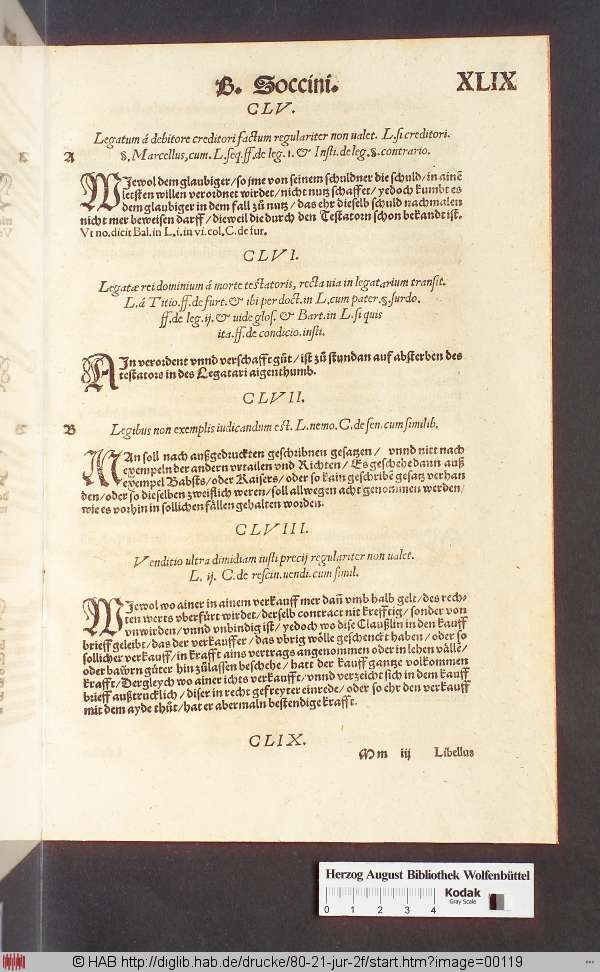 B. Soccini. XLIX
CLV.
Legatum á debitore creditori factum regulariter non ualet. L. si creditori.
A §. Marcellus, cum. L. seq. ff. de leg. 1. & Insti. de leg. §. contrario.
WIewol dem glaubiger / so jme von seinem schuldner die schuld / in ainē
letsten willen verordnet wirdet / nicht nutz schaffet / yedoch kumbt es
dem glaubiger in dem fall zů nutz / das ehr dieselb schuld nachmalen
nicht mer beweisen darff / dieweil die durch den Testatorn schon bekandt ist.
Vt no. dicit Bal. in L. i. in vi. col. C. de iur.
CLVI.
Legatæ rei dominium á morte testatoris, recta uia in legatarium transit.
L. á Titio. ff. de furt. & ibi per doct. in L. cum pater. §. surdo.
ff. de leg. ij. & uide glos. & Bart. in L. si quis
ita. ff. de condicio. insti.
AIn verordent vnnd verschafft gůt / ist zů stundan auf absterben des
testators in des Legatari aigenthumb.
CLVII.
B Legibus non exemplis iudicandum est. L. nemo. C. de sen. cum similib.
MAn soll nach außgedruckten geschribnen gesatzen / vnnd nitt nach
exempeln der andern vrtailen vnd Richten / Es geschehe dann auß
exempel Babsts / oder Kaisers / oder so kain geschribē gesatz verhan
den / oder so dieselben zweiflich weren / soll allwegen acht genommen werden /
wie es vorhin in sollichen fällen gehalten worden.
CLVIII.
Venditio ultra dimidiam iusti precij regulariter non ualet.
L. ij. C. de rescin. uendi. cum simil.
WIewol wo ainer in ainem verkauff mer dañ vmb halb gelt / des rech-
ten werts vberfürt wirdet / derselb contract nit krefftig / sonder von
vnwirden / vnnd vnbindig ist / yedoch wo dise Claußlin in den kauff
brieff geleibt / das der verkauffer / das vbrig wölle geschenckt haben / oder so
sollicher verkauff / in krafft ains vertrags angenommen oder in leben vällē /
oder bawrn güter hin zůlassen beschehe / hatt der kauff gantze volkommen
krafft / Dergleych wo ainer ichts verkaufft / vnnd verzeicht sich in dem kauff
brieff außtrucklich / diser in recht gefreyter einrede / oder so ehr den verkauff
mit dem ayde thůt / hat er abermaln bestendige krafft.
CLIX.
Mm iij Libellus
Herzog August Bibliothek Wolfenbüttel
0 1 2 3 4 Kodak
Gray Scale
© HAB http://diglib.hab.de/drucke/80-21-jur-2f/start.htm?image=00119